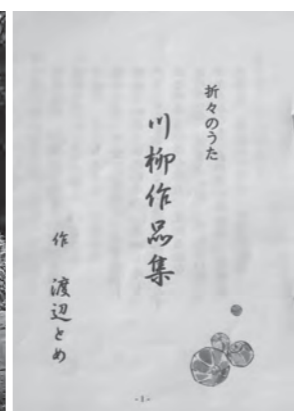 折々のうた
川柳作品集
作　渡辺とめ
-1-